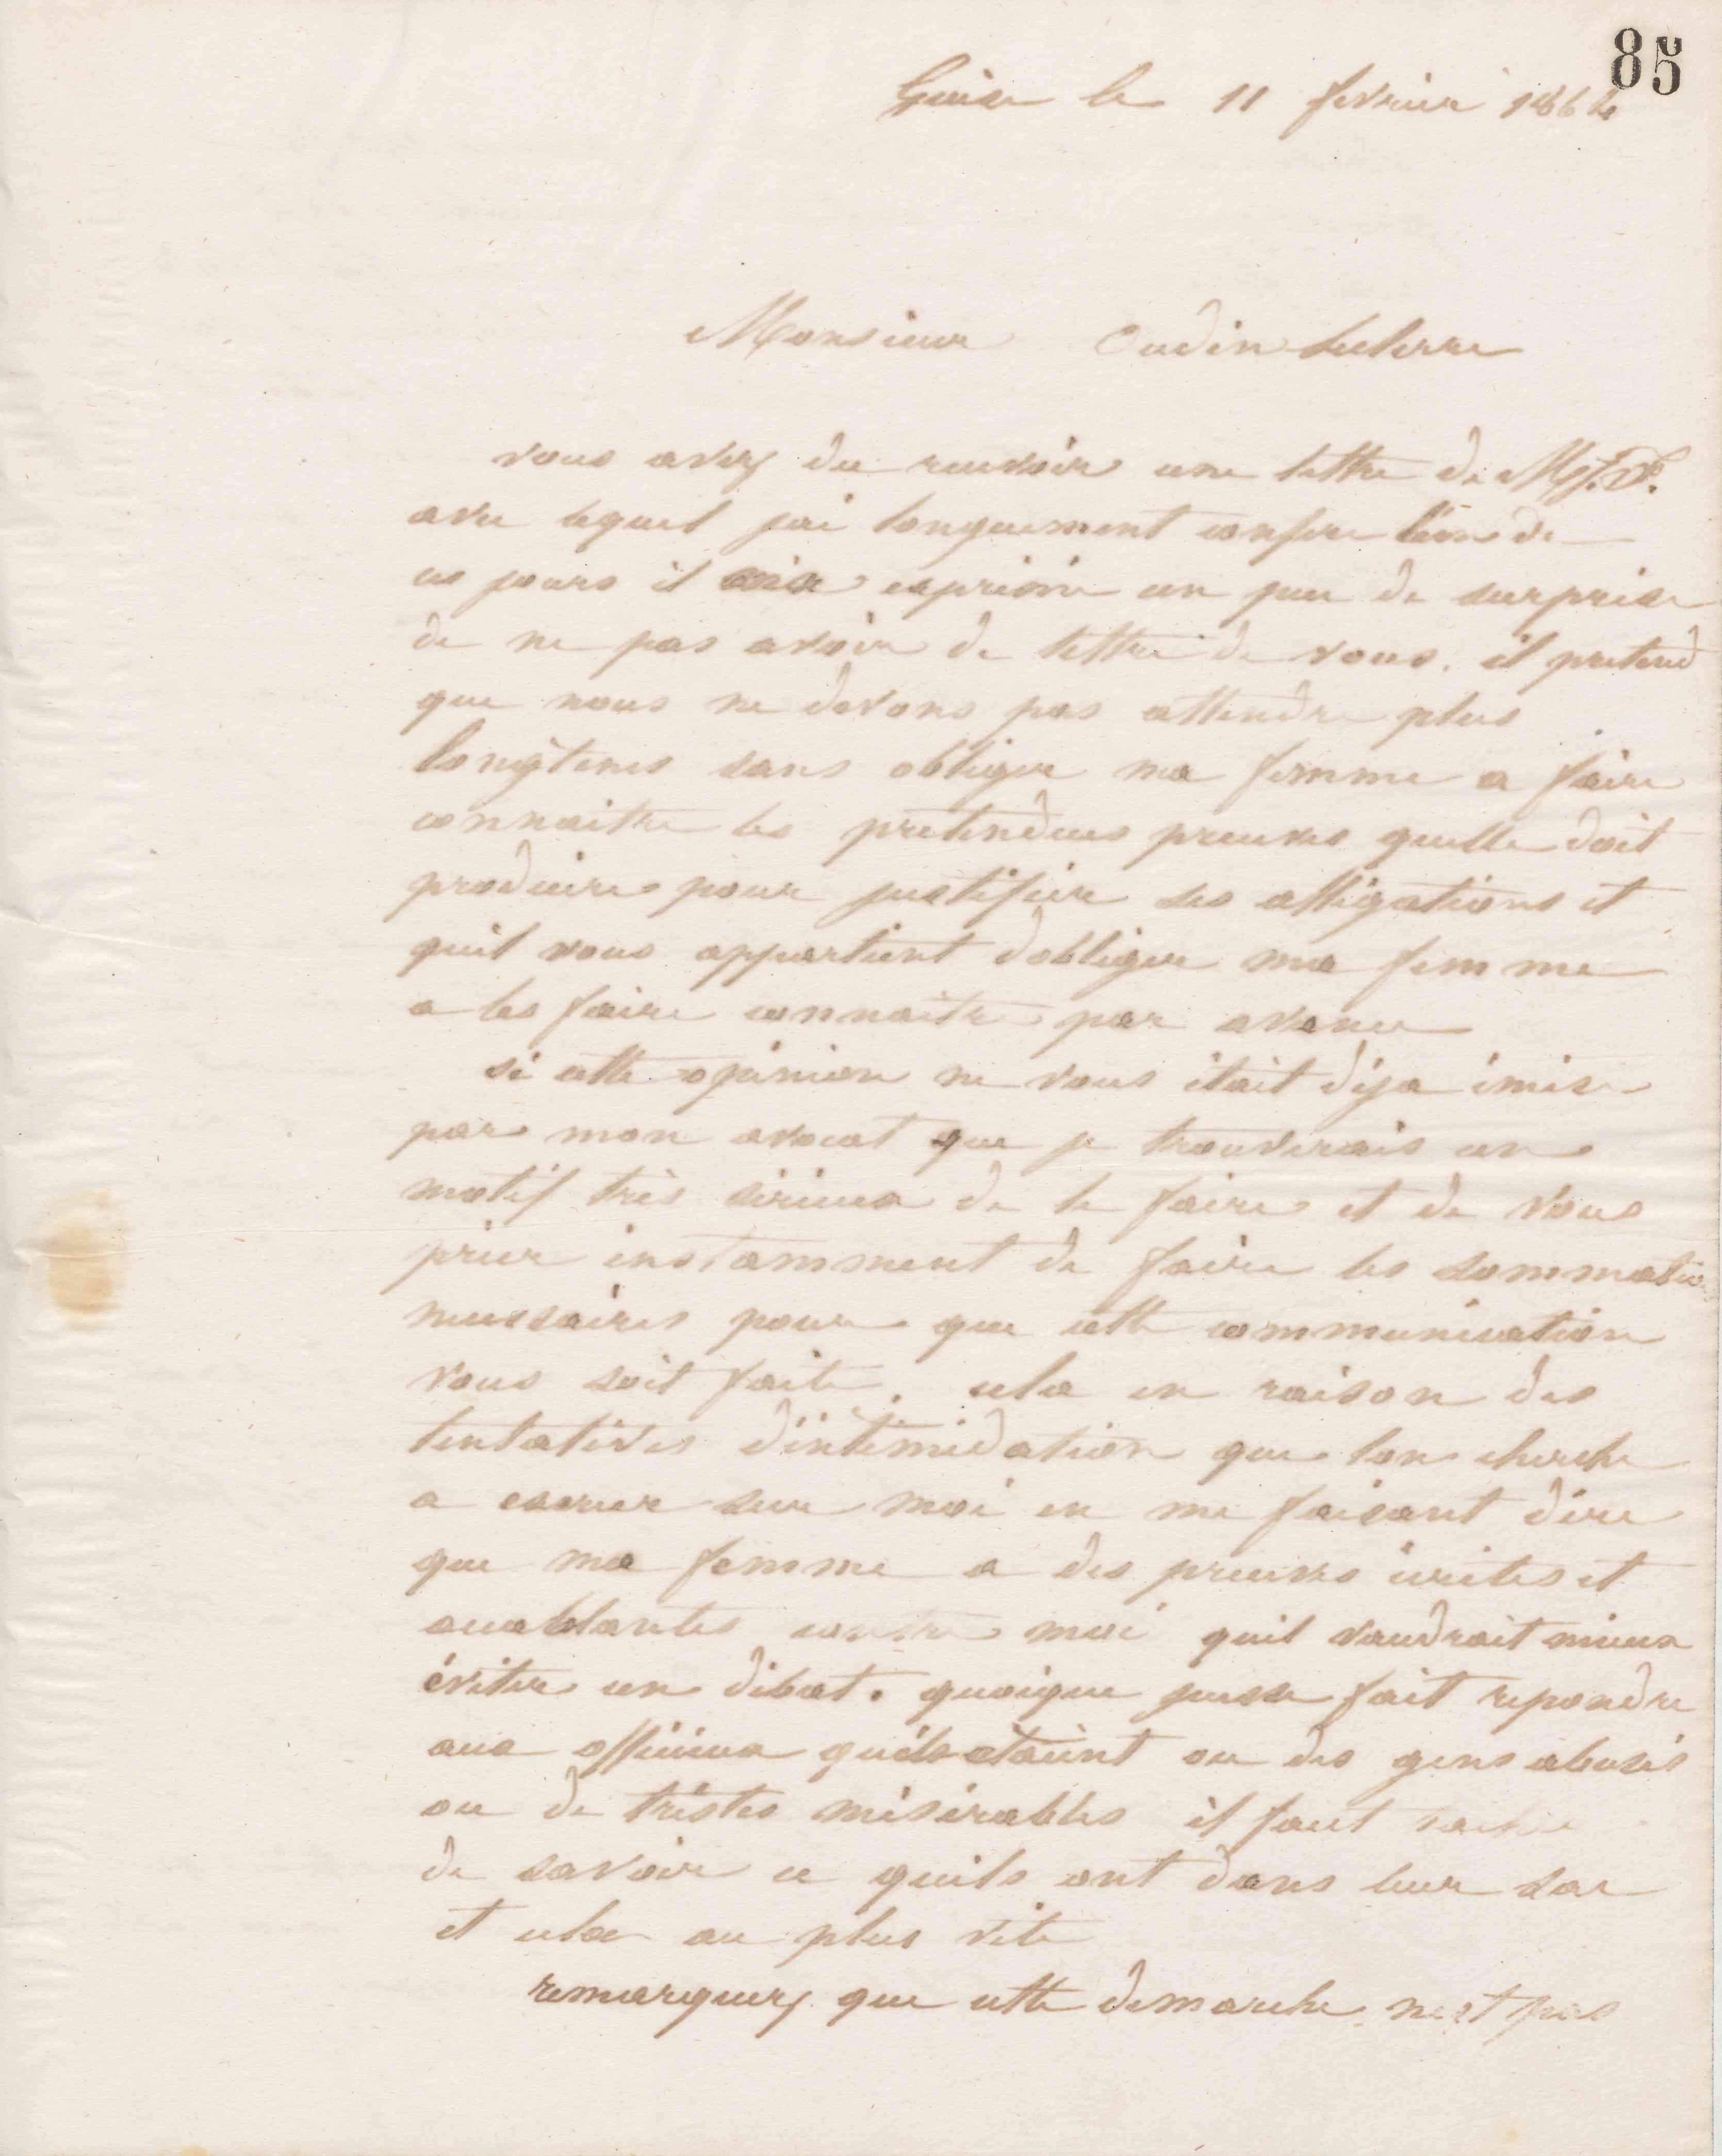 85
Guise le 11 fevrier 1864
Monsieur Oudin Leclerre
vous avez du recevoir une lettre de M J. F.
avec lequel jai longuement confere lun de
ces jours il exprime un peu de surprise
de ne pas avoir de lettre de vous. il pretend
que nous ne devons pas attendre plus
longtems sans obliger ma femme a faire
connaitre les pretendues preuves quelle doit
produire pour justifier ses alligations et
quil vous appartient dobliger ma femme
a les faire connaitre par avance
si cette opinion ne vous était déja émise
par mon avocat que je trouverais un
motif très sérieux de le faire et de vous
prier instamment de faire les sommations
necessaires pour que cette communication
vous soit faite. cela en raison des
tentatives dintimidation que lon cherche
a exercer sur moi en me faisant dire
que ma femme a des preuves écrites et
accablantes contre moi quil vaudrait mieux
éviter un débat. quoique jeusse fait repondre
aux officieux quils étaient ou des gens abusés
ou de tristes misérables il faut tacher
de savoir ce quils ont dans leur sac
et cela au plus vite
remarquez que cette demarche nest pas